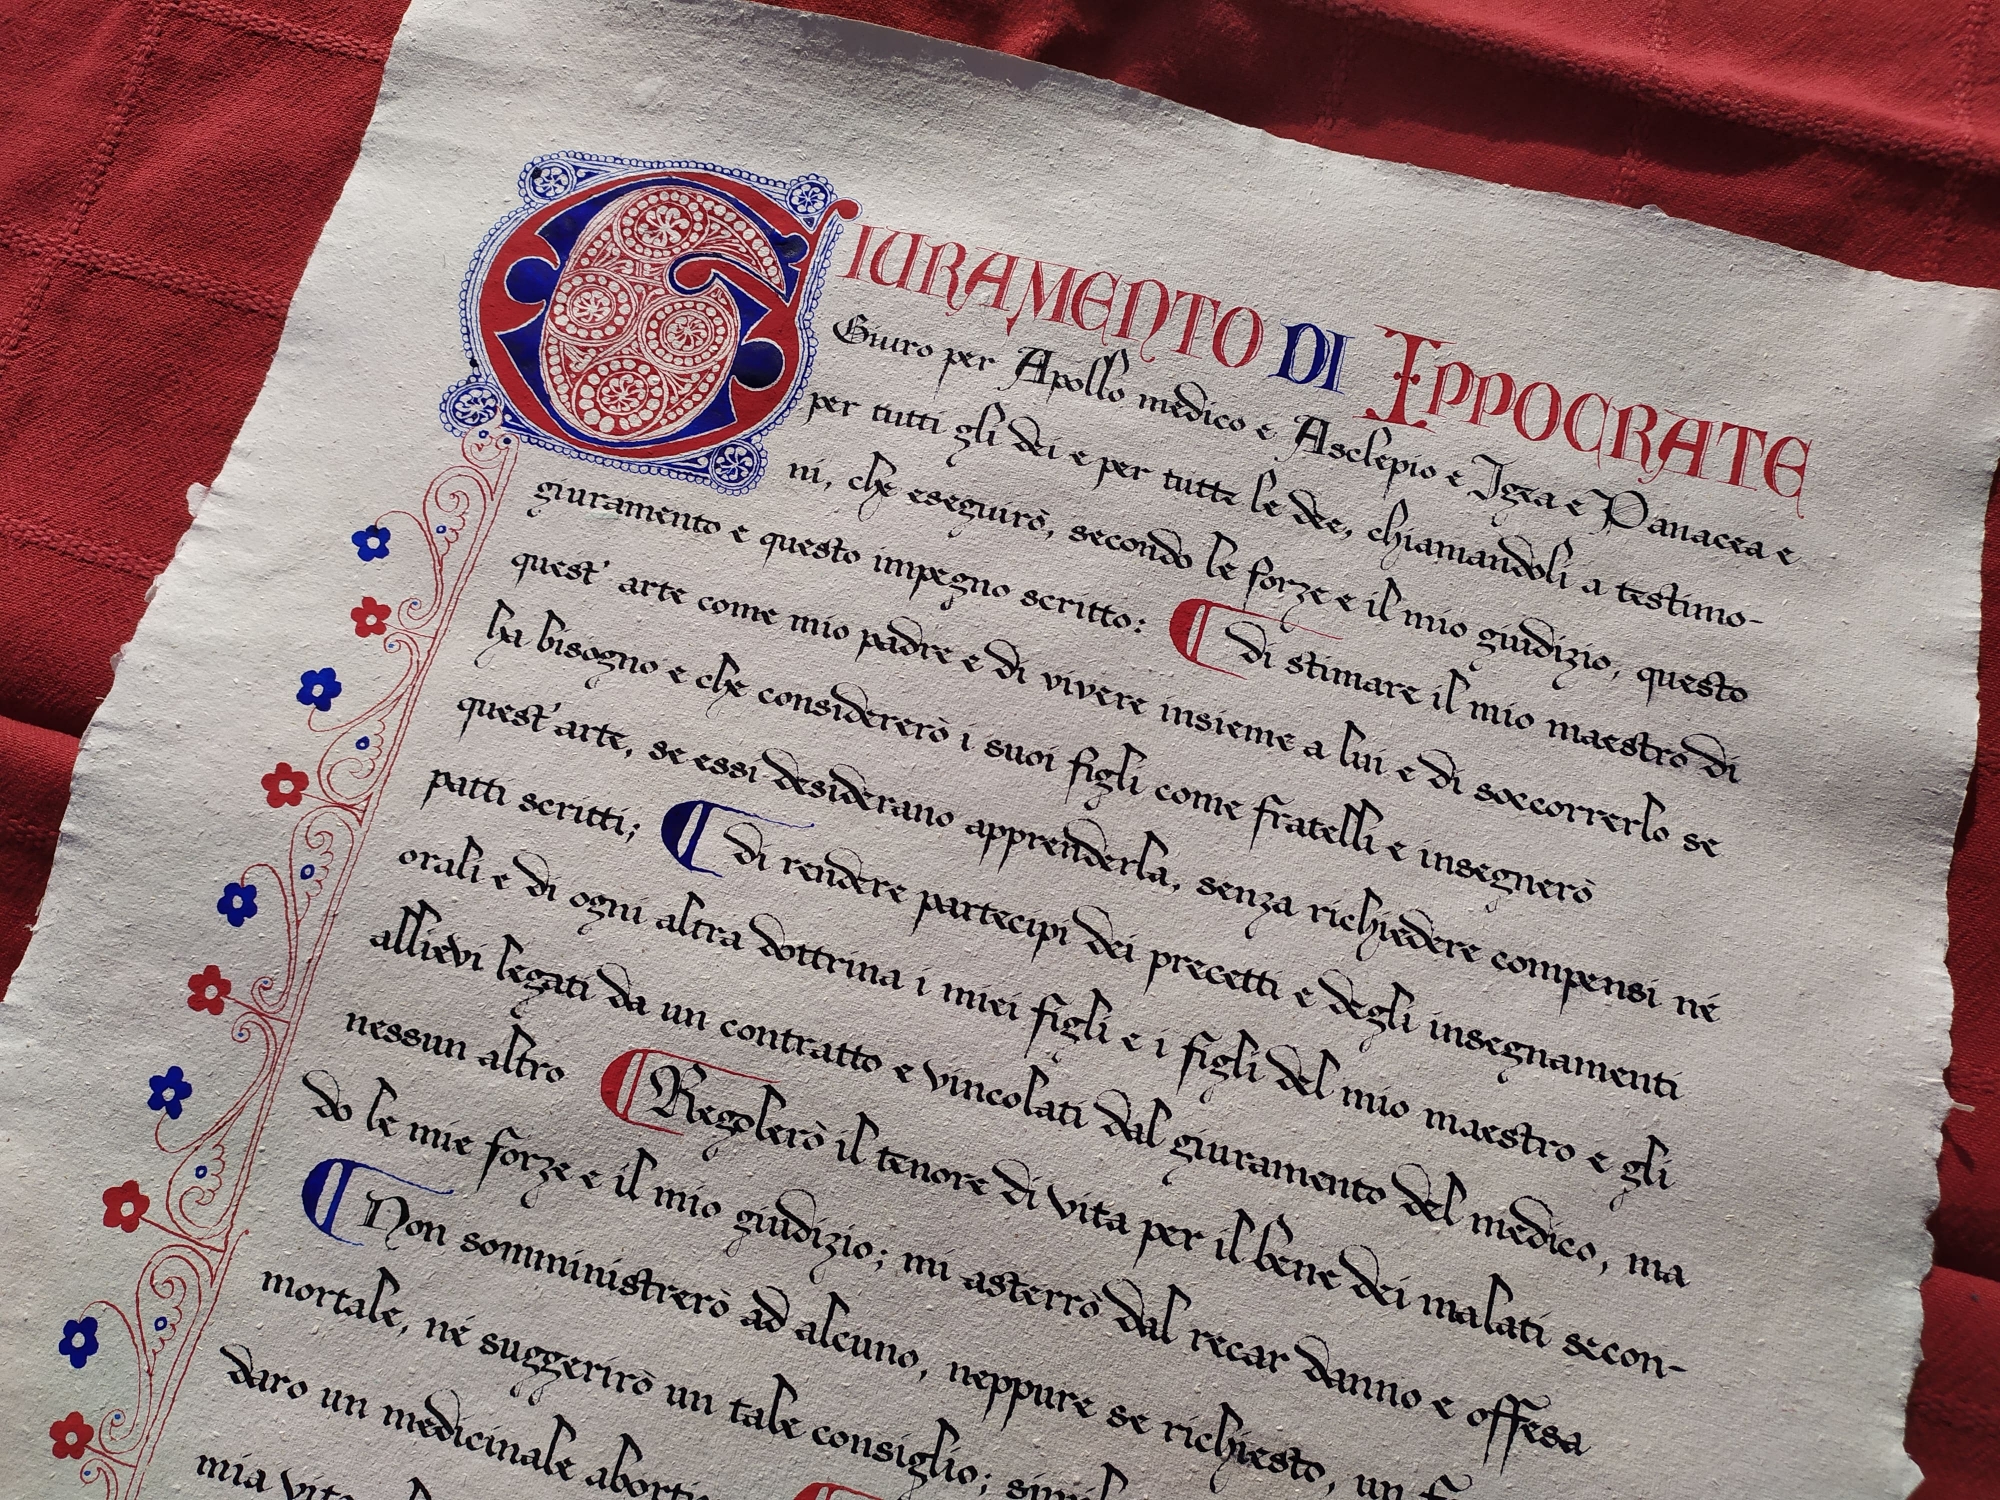 GIURAMENTO DI IPPOCRATE
Giuro per Apollo medico e Asclepio e Igea e Panacea e
per tutti gli dei e per tutte le dee, chiamandoli a testimo-
ni, che eseguirò, secondo le forze e il mio giudizio, questo
giuramento e questo impegno scritto: di stimare il mio maestro di
quest' arte come mio padre e di vivere insieme a lui e di soccorrerlo se
ha bisogno e che considererò i suoi figli come fratelli e insegnerò
quest'arte, se essi desiderano apprenderla, senza richiedere compensi né
patti scritti; di rendere partecipi dei precetti e degli insegnamenti
orali e di ogni altra dottrina i miei figli e i figli del mio maestro e gli
allievi legati da un contratto e vincolati dal giuramento del medico, ma
nessun altro Regolerò il tenore di vita per il bene dei malati secon-
do le mie forze e il mio giudizio; mi asterrò dal recar danno e offesa
Non somministrerò ad alcuno, neppure se richiesto, un
mortale, né suggerirò un tale consiglio;
daro un medicinale
mia